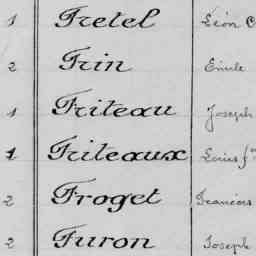 1 Fretel Léon C
2 Frin Emile
1 Friteau Joseph
1 Friteaux Louis f
2 Froget Francois
2 Furon Joseph